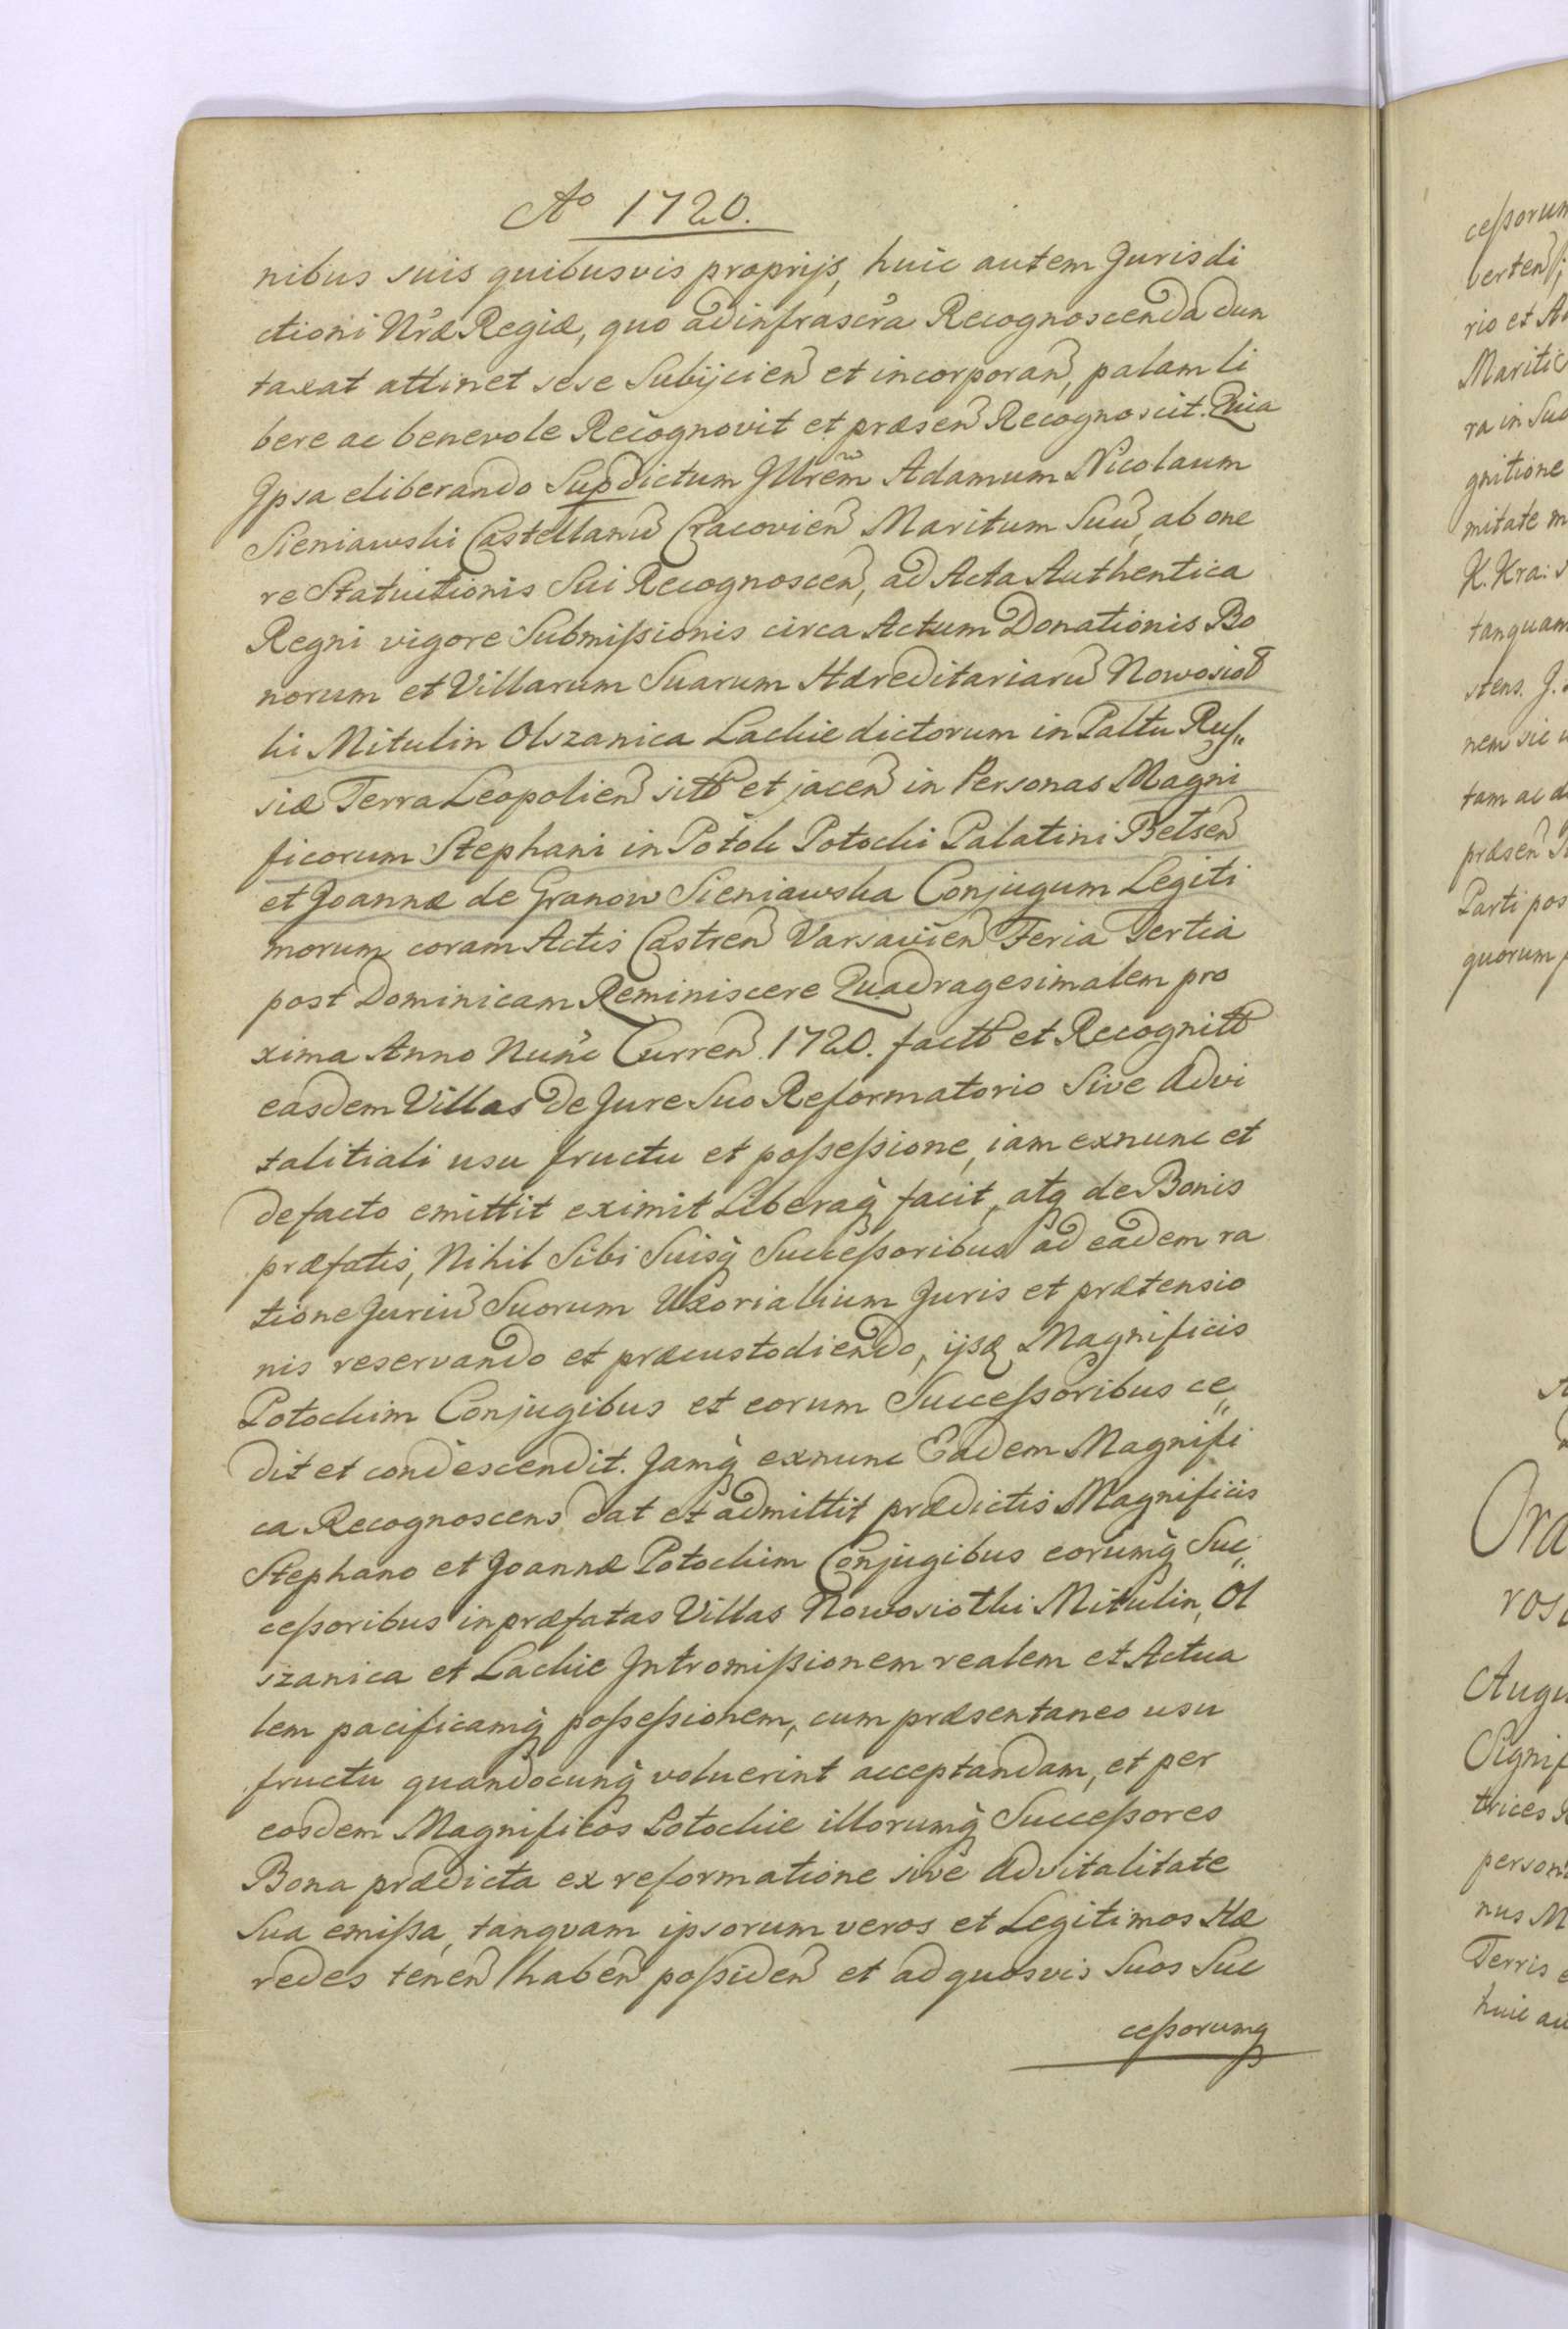 Ao 1720.
nibus suis quibusvis proprijs, huic autem Jurisdi
ctioni Nrae Regiae, quo ad infrascra Recognoscenda dun
taxat attinet sese Subijcien et incorporan, palam li
bere ac benevole Recognovit et praesen Recognoscit. Quia
Ipsa eliberando Supdictum Illrem Adamum Nicolaum
Sieniawski Castellanu Cracovien Maritum Suu, ab one
re Statuitionis Sui Recognoscen, ad Acta Authentica
Regni vigore Submissionis circa Actum Donationis Bo
norum et Villarum Suarum Haereditariaru Nowosiol
ki Mitulin Olszanica Lackie dictorum in Paltu Rus„
siae Terra Leopolien sitt et jacen in Personas Magni
ficorum Stephani in Potok Potocki Palatini Belsen
et Joannae de Granow Sieniawska Conjugum Legiti
morum coram Actis Castren Varsavien Feria Tertia
post Dominicam Reminiscere Quadragesimalem pro
xima Anno Nunc Curren. 1720. factt et Recognitt
easdem Villas de Jure Suo Reformatorio Sive Advi
talitiali usu fructu et possessione, iam exnunc et
defacto emittit eximit Liberaq facit, atq de Bonis
praefatis, Nihil Sibi Suisq Successoribus ad eadem ra
tione Juriu Suorum Uxorialium Juris et praetensio
nis reservando et praecustodiendo, ijsq Magnificis
Potockim Conjugibus et eorum Successoribus ce„
dit et condescendit. Jamq exnunc Eadem Magnifi
ca Recognoscens dat et admittit praedictis Magnificis
Stephano et Joannae Potockim Conjugibus eorumq Suc„
cessoribus in praefatas Villas Nowosiotki Mitulin, Ol
szanica et Lackie Intromissionem realem et Actua
lem pacificamq possessionem, cum praesentaneo usu
fructu quandocunq voluerint acceptandam, et per
eosdem Magnificos Potockie illorumq Successores
Bona praedicta ex reformatione sive Advitalitate
Sua emissa, tanquam ipsorum veros et Legitimos Hae
redes tenen haben possiden et ad quosvis Suos Suc
cessorumq